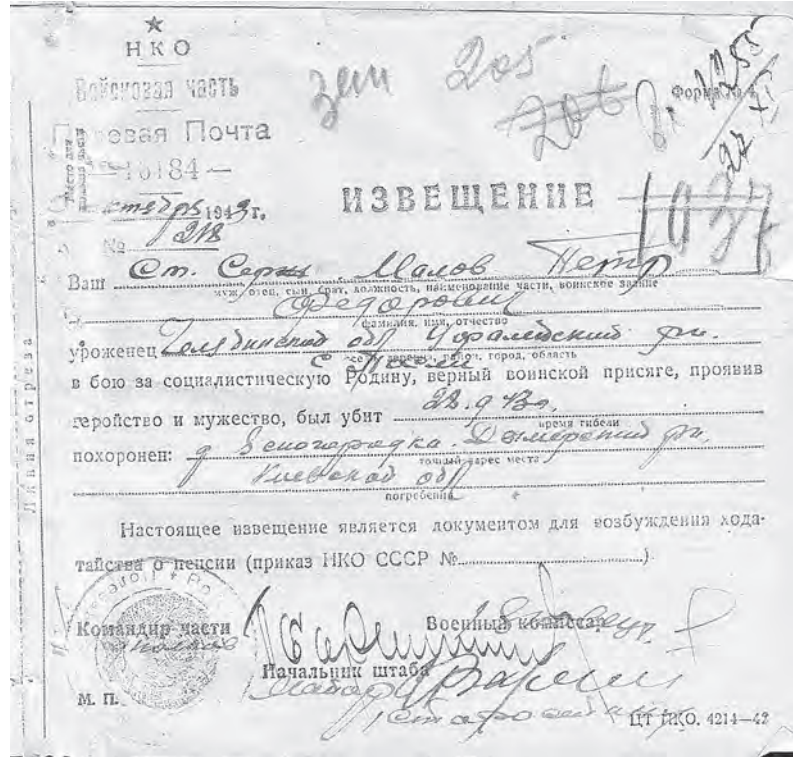 НКО
Войсковая часть
Полевая Почта
— 10184 —
1943 г.
№ 218
зем 205
206
Форма № 4
1255
27 XI
ИЗВЕЩЕНИЕ
1937
Ваш Ст. Серж Малов Петр
муж, отец, сын, брат, должность, наименование части, воинское звание
Федорович
фамилия, имя, отчество
уроженец Челябинской обл Уфалейский рн.
село, деревня, район, город, область
с
в бою за социалистическую Родину, верный воинской присяге, проявив
геройство и мужество, был убит 28.9 43г.
время гибели
похоронен: д Дымерский рн.
точный адрес места
Киевской обл
погребения
Настоящее извещение является документом для возбуждения хода-
тайства о пенсии (приказ НКО СССР № ).
Командир части
Военный комиссар
Начальник штаба
М. П.
ЦТ НКО. 4214—42
Линия отреза